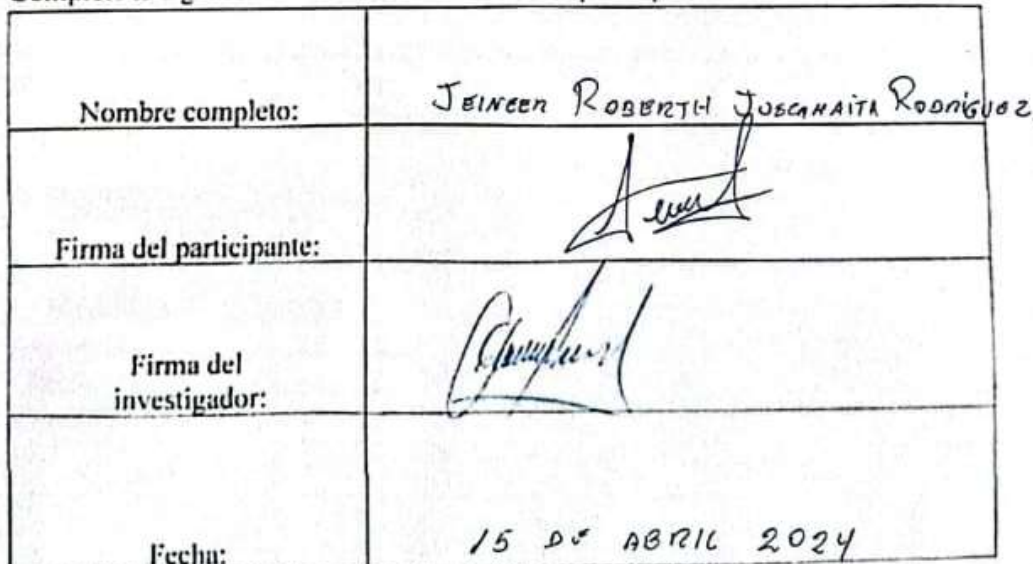 Nombre completo: JEINCER ROBERTH JUSCAMAITA RODRÍGUEZ
Firma del participante:
Firma del
investigador:
Fecha: 15 DE ABRIL 2024